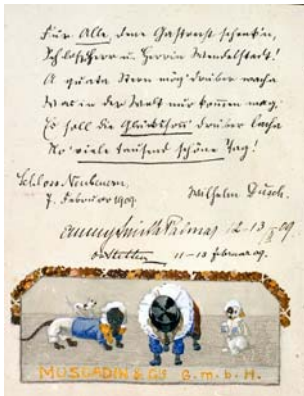 Für Alle, denen Gastrecht schenken,
Schlossherr u. Herrin Wendelstadt!
A guata Stern mög' drüber wacha
Was in der Welt nur kommen mag,
soll die drüber lacha
No' viele tausend schöne Tag!
Schloss Neubeuern,
7. Februar 1909.
Wilhelm
12-13/II 09.
11-13 Februar 09.
G.m.b.H.